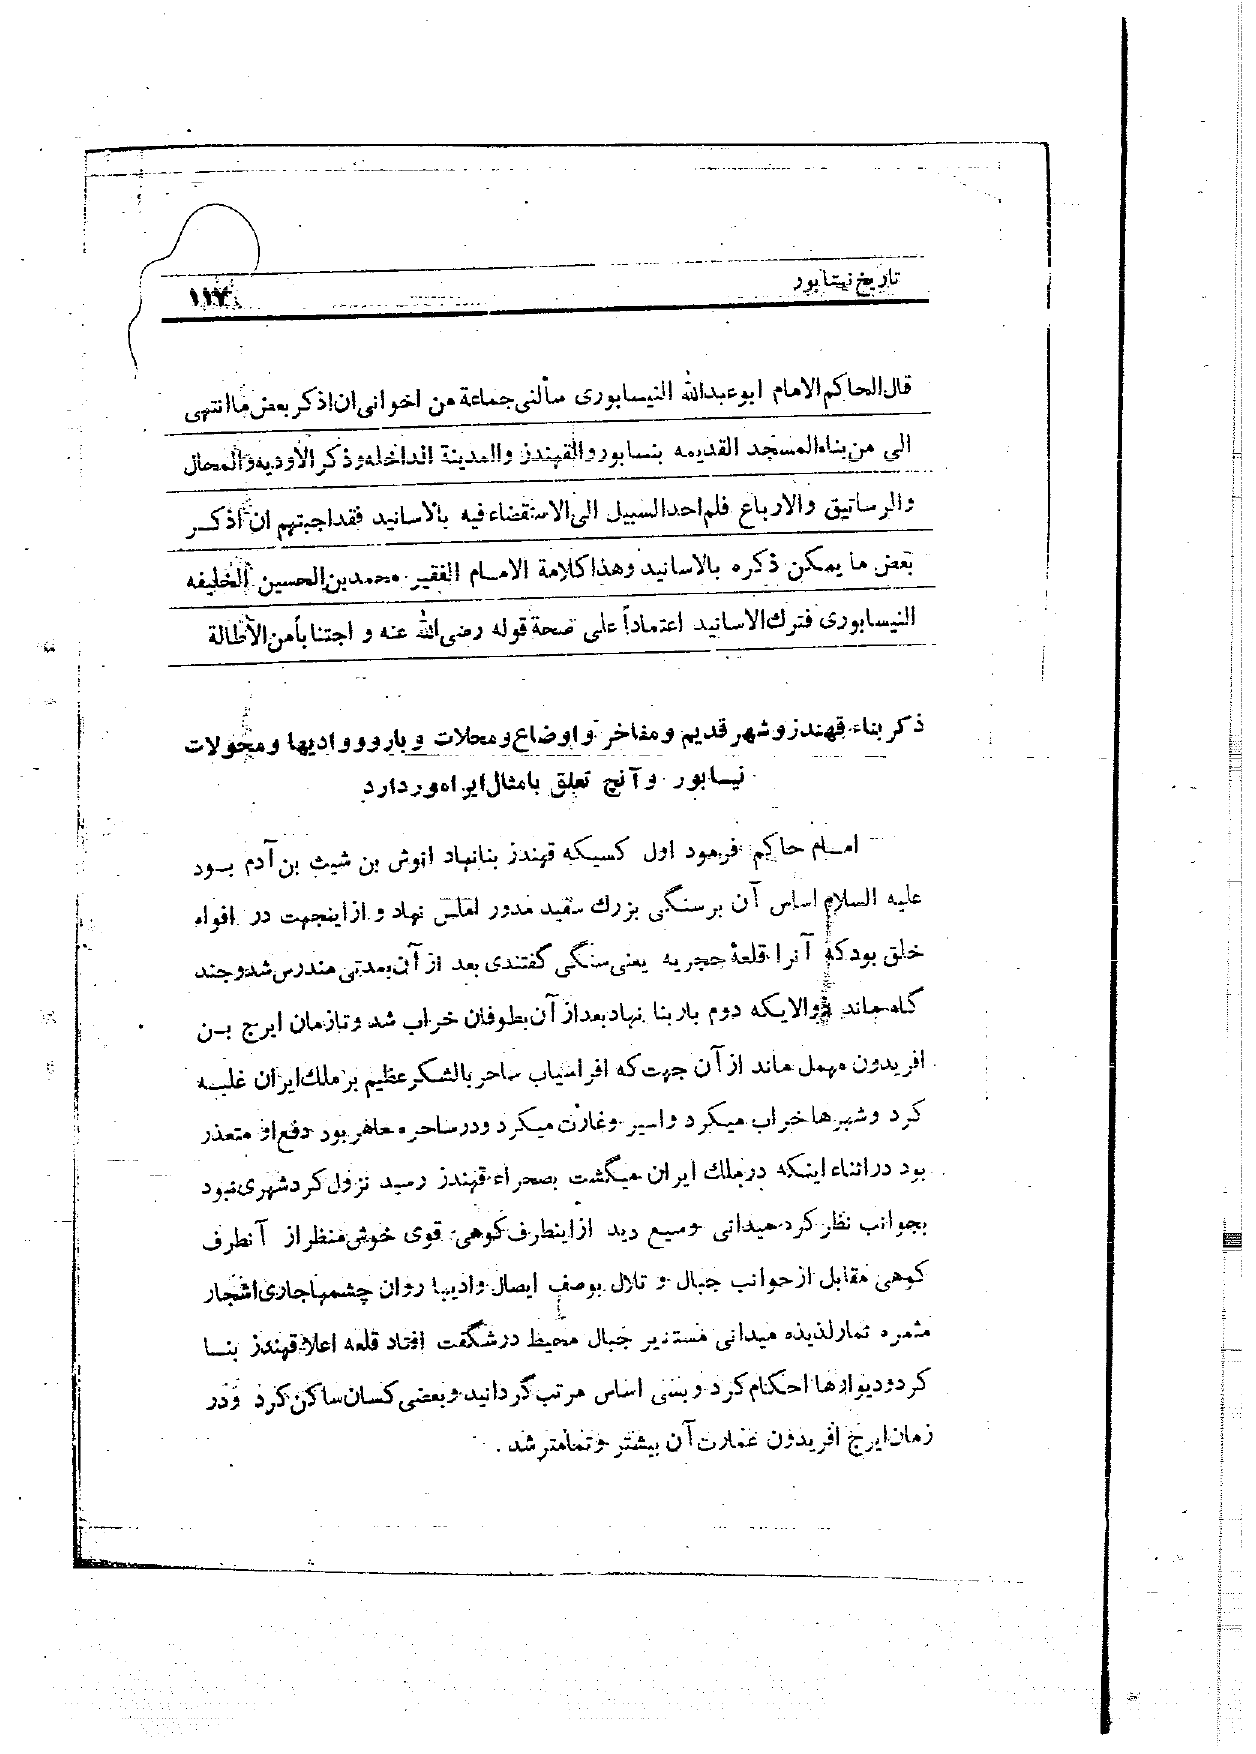 تاریخ نیشابور
۱۱۷
قال الحاکم الامام ابوعبدالله النیسابوری سألنی جماعة من اخوانی ان اذکر بعض ما انتهی
الی من بناء المسجد القدیمه بنسابور والقهندز والمدینة الداخله وذکر الاودیه والمحال
والرساتیق والارباع فلم احد السبیل الی الاستقضاء فیه بالاسانید فقد اجبتهم ان اذکر
بعض ما یمکن ذکره بالاسانید وهذا کلامة الامام الفقیر محمد بن الحسین الخلیفه
النیسابوری فترك الاسانید اعتماداً علی صحة قوله رضی الله عنه و اجتناباً من الأطالة
ذکر بناء قهندز و شهر قدیم و مفاخر و اوضاع و محلات و بارو و وادیها و محولات
نیسابور و آنچ تعلق بامثال این امور دارد
امام حاکم فرمود اول کسیکه قهندز بنا نهاد انوش بن شیث بن آدم بود
علیه السلام اساس آن بر سنگی بزرك سفید مدور املس نهاد و از اینجهت در افواه
خلق بود که آنرا قلعهٔ حجریه یعنی سنگی گفتندی بعد از آن بمدتی مندرس شد و چند
گاه بماند والایکه دوم بار بنا نهاد بعد از آن بطوفان خراب شد و تا زمان ایرج بن
افریدون مهمل ماند از آن جهت که افراسیاب ساحر بالشکر عظیم بر ملك ایران غلبه
کرد و شهرها خراب میکرد و اسیر و غارت میکرد و در ساحره ماهر بود دفع او متعذر
بود در اثناء اینکه در ملك ایران میگشت بصحراء قهندز رسید نزول کرد شهری نبود
بجوانب نظر کرد میدانی وسیع دید از اینطرف کوهی قوی خوش منظر از آنطرف
کوهی مقابل از جوانب جبال و تلال بوصف ایصال وادیها روان چشمها جاری اشجار
مثمره ثمار لذیذه میدانی مستدیر جبال محیط در شگفت افتاد قلعه اعلا قهندز بنا
کرد و دیوارها احکام کرد و بسی اساس مرتب گردانید و بعضی کسان ساکن کرد و در
زمان ایرج افریدون عمارت آن بیشتر و تمامتر شد .